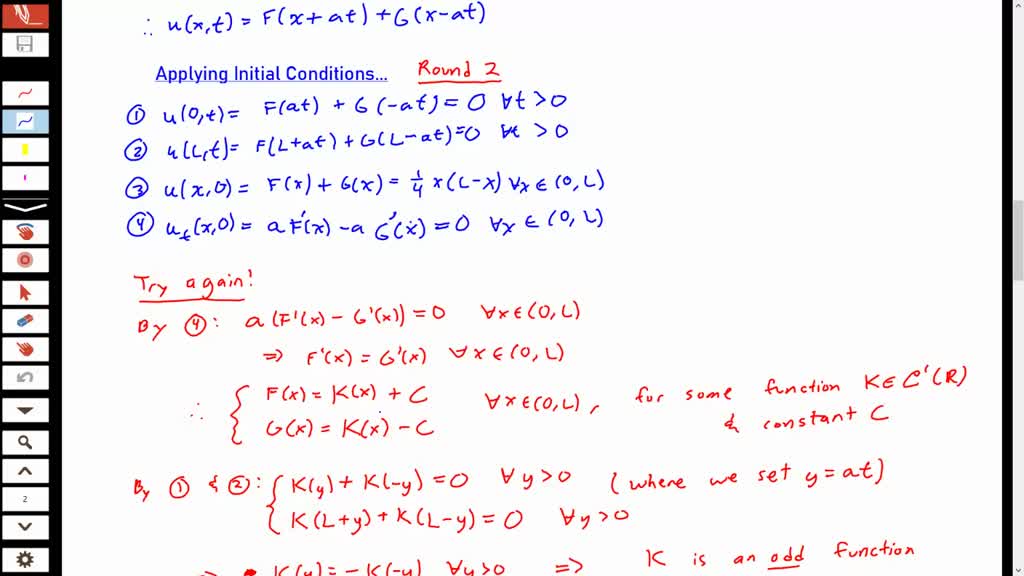 ∴ u(x,t) = F(x+at) + G(x-at)
Applying Initial Conditions... Round 2
① u(0,t) = F(at) + G(-at) = 0 ∀t > 0
② u(L,t) = F(L+at) + G(L-at) = 0 ∀t > 0
③ u(x,0) = F(x) + G(x) = 1/4 x(L-x) ∀x ∈ (0, L)
④ u_t(x,0) = a F'(x) - a G'(x) = 0 ∀x ∈ (0, L)
Try again!
By ④: a (F'(x) - G'(x)) = 0 ∀x ∈ (0, L)
⇒ F'(x) = G'(x) ∀x ∈ (0, L)
∴ { F(x) = K(x) + C
G(x) = K(x) - C
∀x ∈ (0, L), for some function K ∈ C'(R)
& constant C
By ① & ②: { K(y) + K(-y) = 0 ∀y > 0 (where we set y = at)
K(L+y) + K(L-y) = 0 ∀y > 0
⇒ • K(y) = -K(-y) ∀y > 0 ⇒ K is an odd function
2